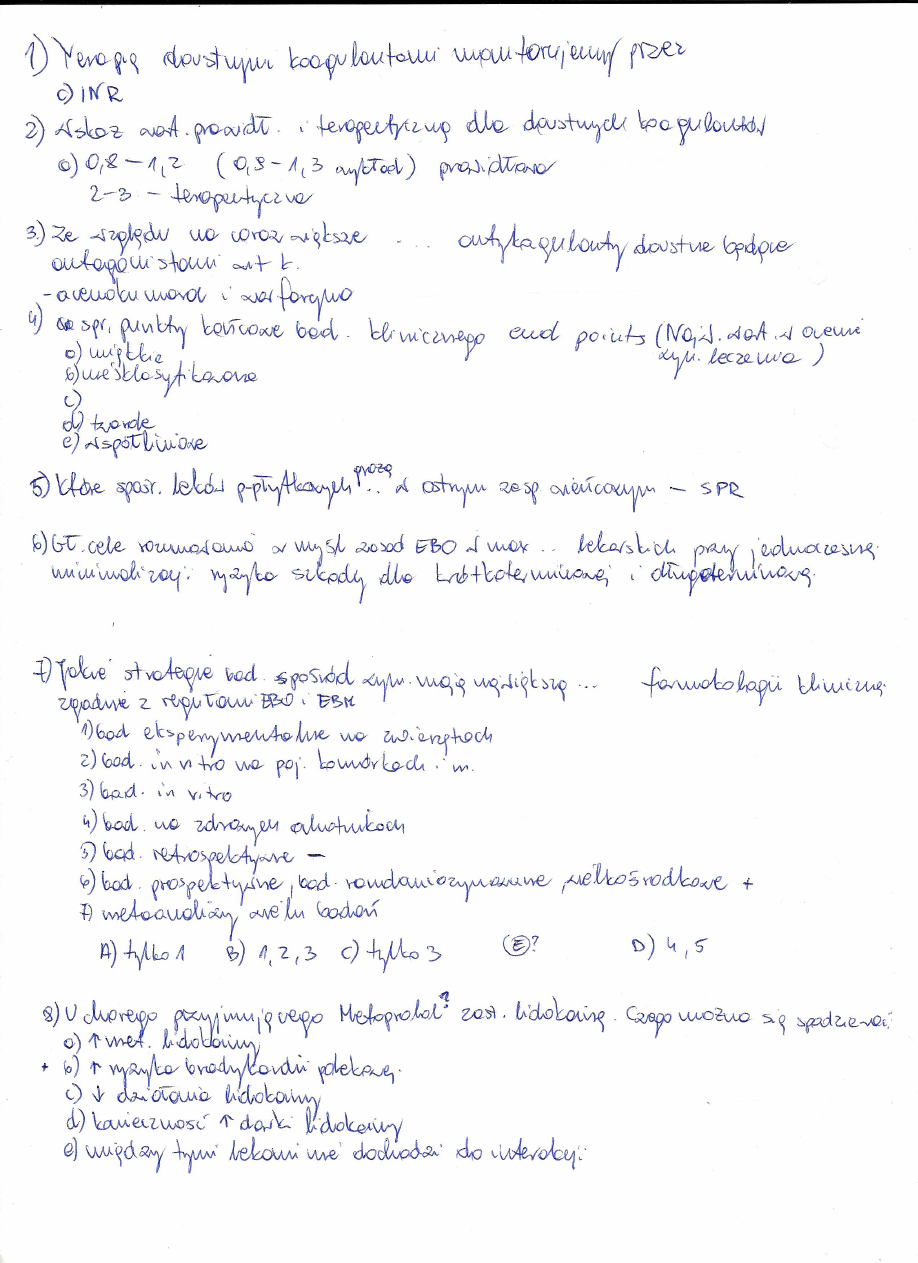 1) Terapię doustnymi koagulantami monitorujemy przez
c) INR
2) Wskaż wart. prawidł. i terapeutyczną dla doustnych koagulantów
a) 0,8 – 1,2 (0,9 – 1,3 wykład) prawidłowa
2-3 – terapeutyczna
3.) Ze względu na coraz większe .... antykagulanty doustne będące
antagonistami wit k.
- acenokumarol i warfaryna
4) spr. punkty końcowe bad. klinicznego end points (Najw. wart. w ocenie
a) miękkie
wyn. leczenia)
b) niesklasyfikowane
c)
d) twarde
e) współliniowe
5) Które spośr. leków p-płytkowych .. w ostrym zesp wieńcowym – SPR
6) Gł. cele rozumowania w myśl zasad EBO w max .. lekarskich przy jednoczesnej
minimalizacji ryzyka szkody dla krótkoterminowej i długoterminowej.
7) Jakie strategie bad. spośród wym. mają największą ... farmakologii kliniczną
zgodnie z regułami EBO i EBM
1) bad eksperymentalne na zwierzętach
2) bad. in vitro na poj. komórkach i m.
3) bad. in vitro
4) bad. na zdrowych ochotnikach
5) bad. retrospektywne –
6) bad. prospektywne, bad. randomizynowane, wielkośrodkowe +
7) metaanalizy wielu badań
A) tylko 1 B) 1, 2, 3 C) tylko 3 E? D) 4, 5
8) U chorego przyjmującego Metoprolol? zast. lidokainę. Czego można się spodziewać:
a) ↑ met. lidokainy
+ b) ↑ ryzyko bradykardii polekowej.
c) ↓ działania lidokainy
d) konieczność ↑ dawki lidokainy
e) między tymi lekami nie dochodzi do interakcji